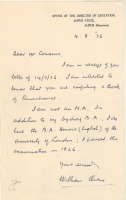 OFFICE OF THE DIRECTOR OF EDUCATION,
4. 9. 36
Dear Mr Cousens,
I am in receipt of your
letter of 14/8/36. I am interested to
know that you are compiling a Book
of
I am not an M.A. In
addition to my Sydney B.A. I
the B.A. Honours (English) of the
University of London; I passed the
examination in 1926.
Yours sincerely
William